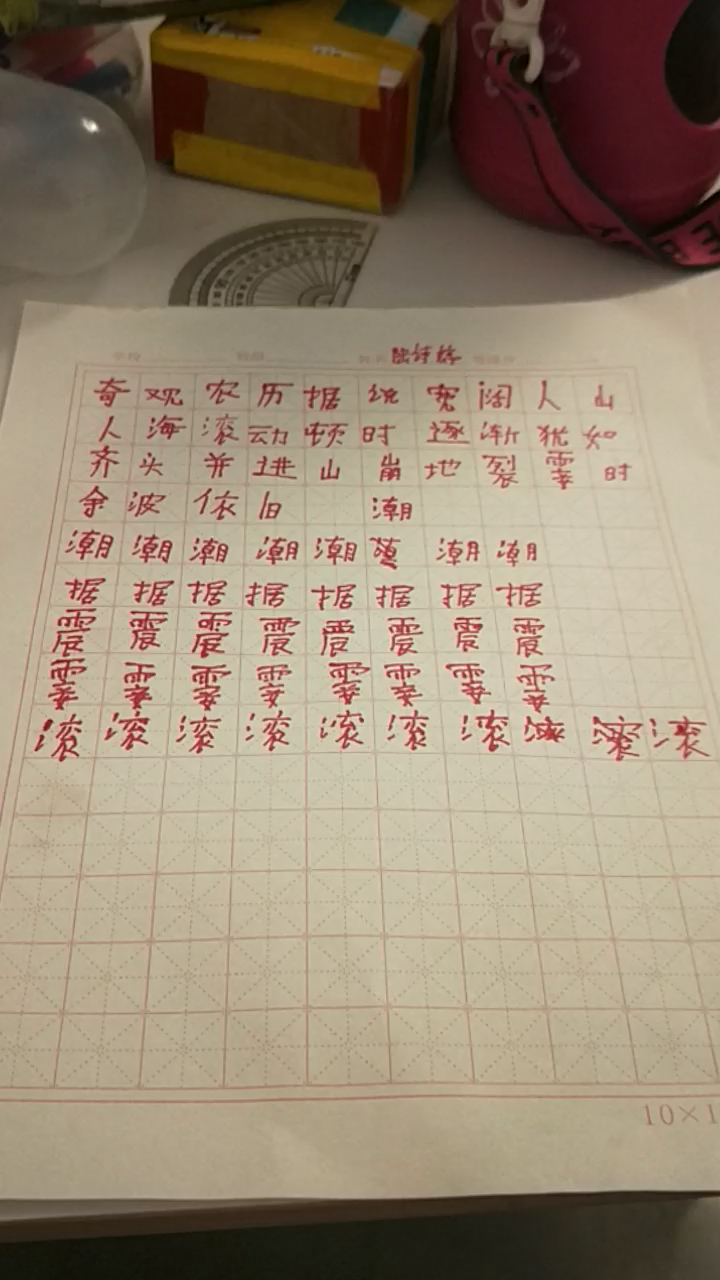 奇观农历据说宽阔人山
人海滚动顿时逐渐犹如
齐头并进山崩地裂霎时
余波依旧 潮
潮潮潮潮潮潮潮
据据据据据据据据
震震震震震震震震
霎霎霎霎霎霎霎霎
滚滚滚滚滚滚滚滚滚滚
10×1